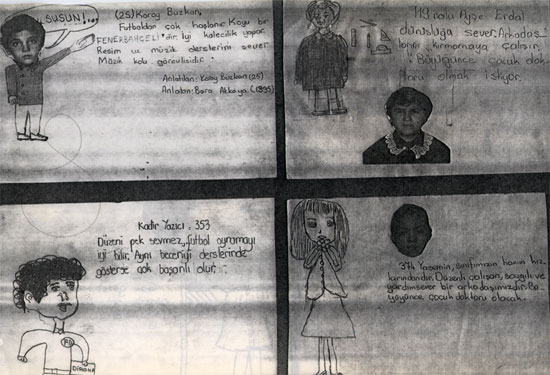 SUSUN!...
(25) Koray Buzkan,
Futboldan çok hoşlanır. Koyu bir
FENERBAHÇELİ'dir. İyi kalecilik yapar.
Resim ve müzik derslerini sever.
Müzik kolu görevlisidir.
Anlatılan: Koray Buzkan (25)
Anlatan: Bora Akkaya (1395)
119 nolu Ayşe Erdal
dürüstlüğü sever. Arkadaş
larını kırmamaya çalışır.
Büyüyünce çocuk dok
toru olmak istiyor.
Kadir Yazıcı : 353
Düzeni pek sevmez, futbol oynamayı
iyi bilir. Aynı beceriyi derslerinde
gösterse çok başarılı olur.
13
DİPLOMA
374 Yasemin, sınıfımızın hanım kız
larındandır. Düzenli çalışan, saygılı ve
yardımsever bir arkadaşımızdır. Bü
yüyünce çocuk doktoru olacak.